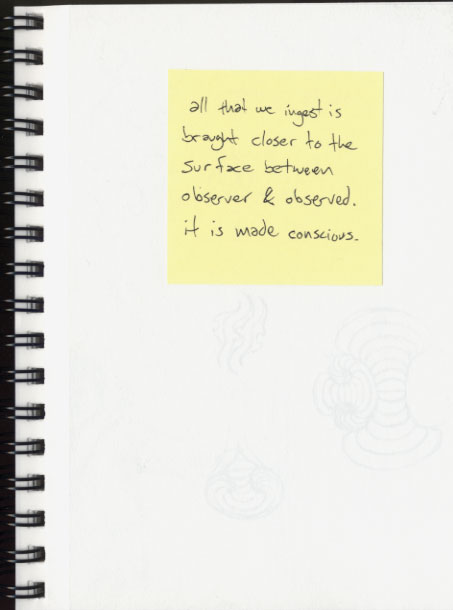 all that we ingest is
brought closer to the
surface between
observer & observed.
it is made conscious.